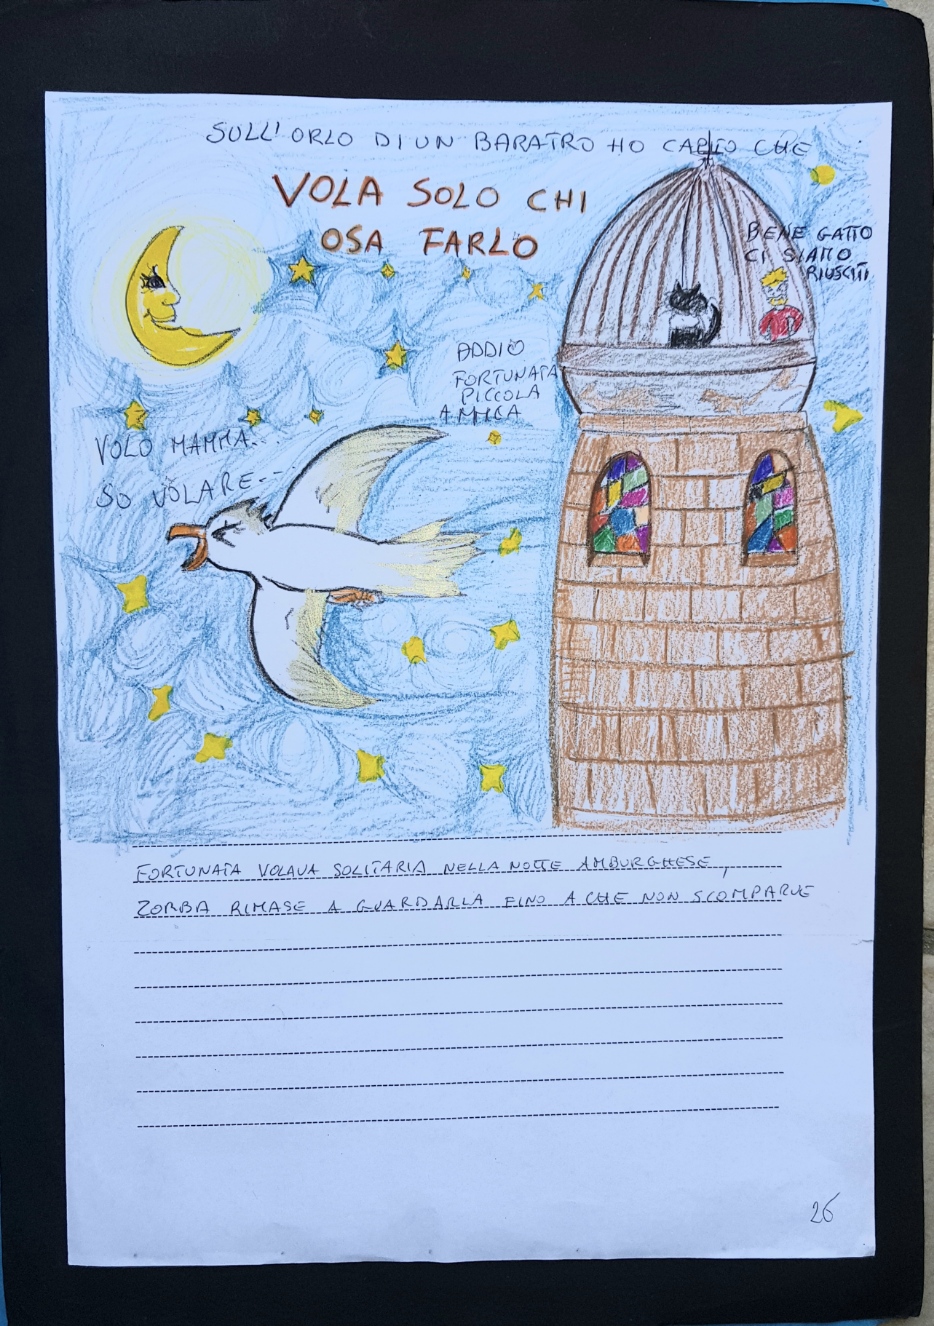 SULL'ORLO DI UN BARATRO HO CAPITO CHE
VOLA SOLO CHI
OSA FARLO
BENE GATTO
CI SIAMO
RIUSCITI
ADDIO
FORTUNATA
PICCOLA
AMICA
VOLO MAMMA...
SO VOLARE--
FORTUNATA VOLAVA SOLITARIA NELLA NOTTE AMBURGHESE,
ZORBA RIMASE A GUARDARLA FINO A CHE NON SCOMPARVE
26